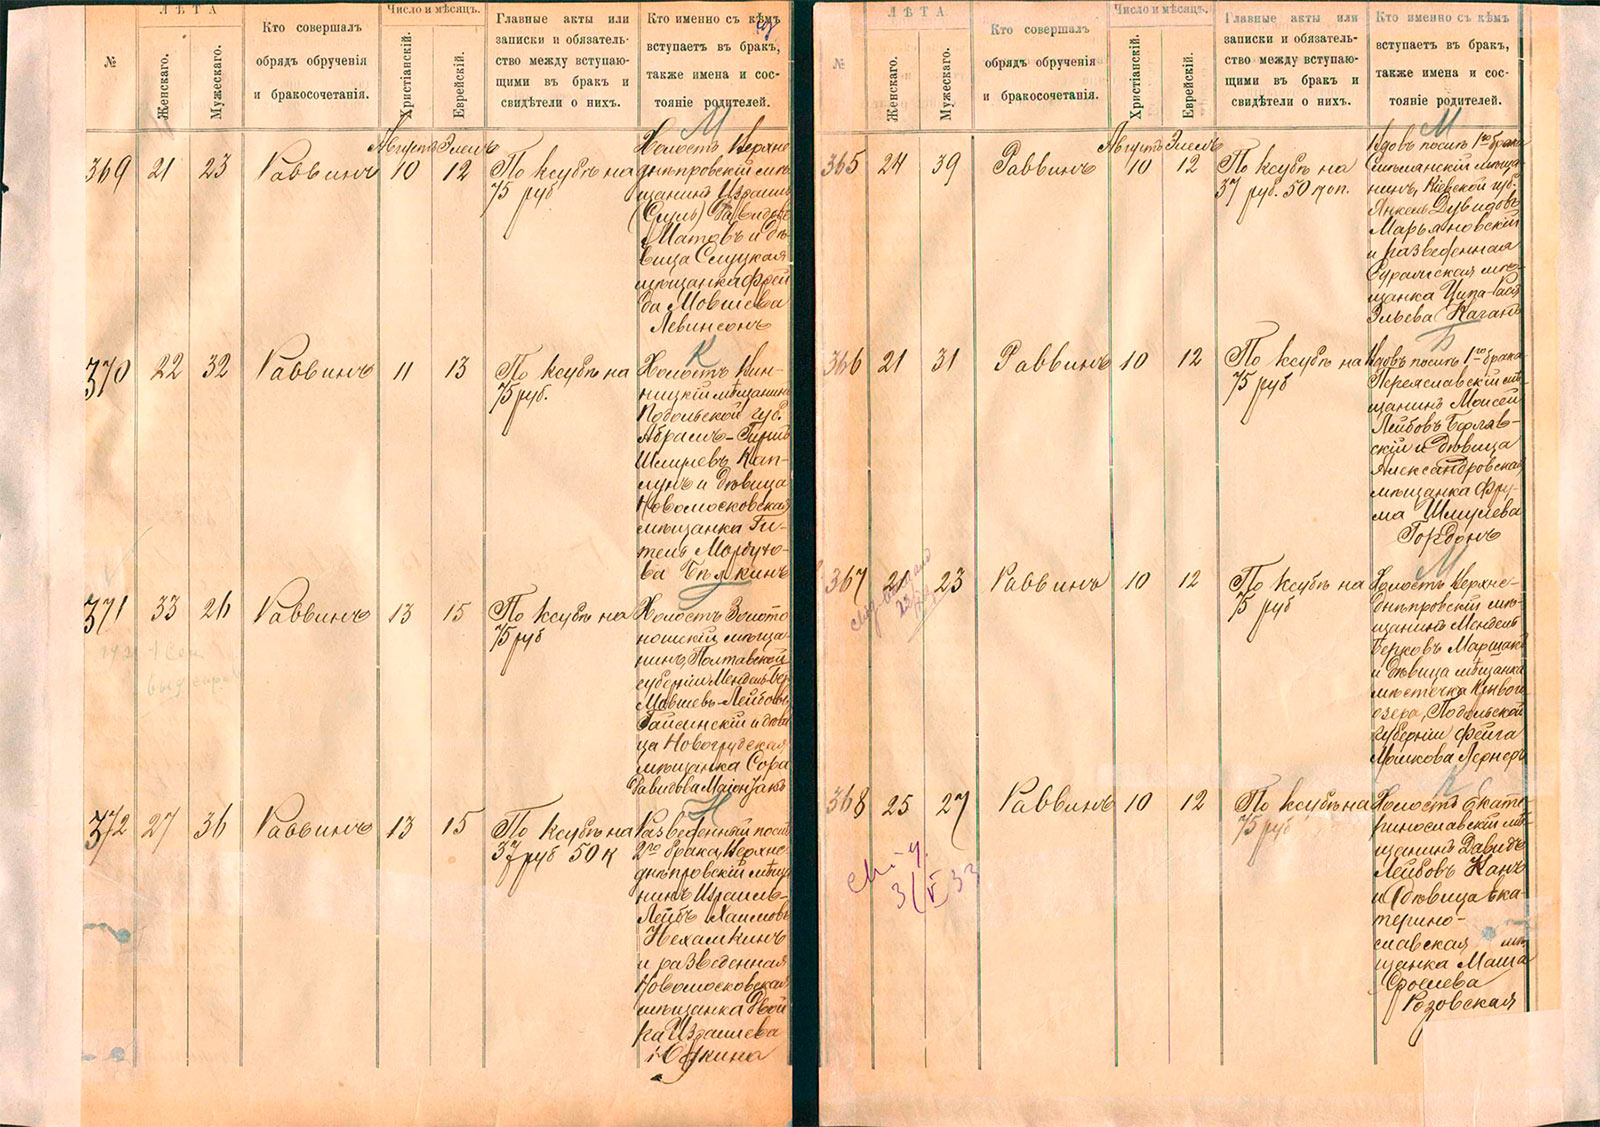 ЛѢТА
Число и мѣсяцъ.
№
Женскаго.
Мужескаго.
Кто совершалъ
обрядъ обрученія
и бракосочетанія.
Христіанскій.
Еврейскій.
Главные акты или
записки и обязатель-
ство между вступаю-
щими въ бракъ и
свидѣтели о нихъ.
Кто именно съ кѣмъ
вступаетъ въ бракъ,
также имена и сос-
тояніе родителей.
Августъ Элелъ
М
369 21 23 Раввинъ 10 12
По ксубѣ на
75 руб
Холостъ Верхне
днѣпровскій мѣ-
щанинъ Израиль
Матовъ и дѣ-
вица Слуцкая
мѣщанка Фрей
да Мовшева
Левинсонъ
К
370 22 32 Раввинъ 11 13
По ксубѣ на
75 руб.
Холостъ Вин-
ницкій мѣщанинъ
Подольской губ.
Абрамъ-Гиршъ
Шмулевъ Кап-
лунъ и дѣвица
Новомосковская
мѣщанка Ги-
тель Мордухо-
ва Бѣлкинъ
Г
371 33 26 Раввинъ 13 15
По ксубѣ на
75 руб
Холостъ Золото
ношскій мѣща-
нинъ, Полтавской
губерніи Мендель-Бер
Мовшевъ-Лейбовъ
Гайсинскій и дѣви
ца Новогрудская
мѣщанка Сора
Давидова
Н
372 27 36 Раввинъ 13 15
По ксубѣ на
37 руб 50 к
Разведенный послѣ
2го брака, Верхне-
днѣпровскій мѣща
нинъ Израиль-
Лейбъ Хаимовъ
Нехамкинъ
и разведенная
Новомосковская
мѣщанка Двой
ра Израилева
ЛѢТА
Число и мѣсяцъ.
№
Женскаго.
Мужескаго.
Кто совершалъ
обрядъ обрученія
и бракосочетанія.
Христіанскій.
Еврейскій.
Главные акты или
записки и обязатель-
ство между вступаю-
щими въ бракъ и
свидѣтели о нихъ.
Кто именно съ кѣмъ
вступаетъ въ бракъ,
также имена и сос-
тояніе родителей.
Августъ Элелъ
М
365 24 39 Раввинъ 10 12
По ксубѣ на
37 руб. 50 коп.
Вдовъ послѣ 1го брака
Смѣлянскій мѣща-
нинъ, Кіевской губ.
Янкель Дувидовъ
Марьяновскій
и разведенная
Суражская мѣ-
щанка Ципа-Бася
Эльева Каганъ
Б
366 21 31 Раввинъ 10 12
По ксубѣ на
75 руб
Вдовъ послѣ 1го брака
Переяславскій мѣ-
щанинъ Моисей
Лейбовъ Берляв-
скій и дѣвица
Александровская
мѣщанка Фру-
ма Шмулева
Гордонъ
М
367 21 23 Раввинъ 10 12
По ксубѣ на
75 руб
Холостъ Верхне-
днѣпровскій мѣ-
щанинъ Мендель
Берковъ Маршакъ
и дѣвица мѣщанка
мѣстечка Кривого
озера, Подольской
губерніи Фейга
Мошкова Лернеръ
К
368 25 27 Раввинъ 10 12
По ксубѣ на
75 руб
Холостъ Екате-
ринославскій мѣ-
щанинъ Давидъ
Лейбовъ Канъ
и дѣвица Ека-
терино-
славская мѣ-
щанка Маша
Сролева
Розовская